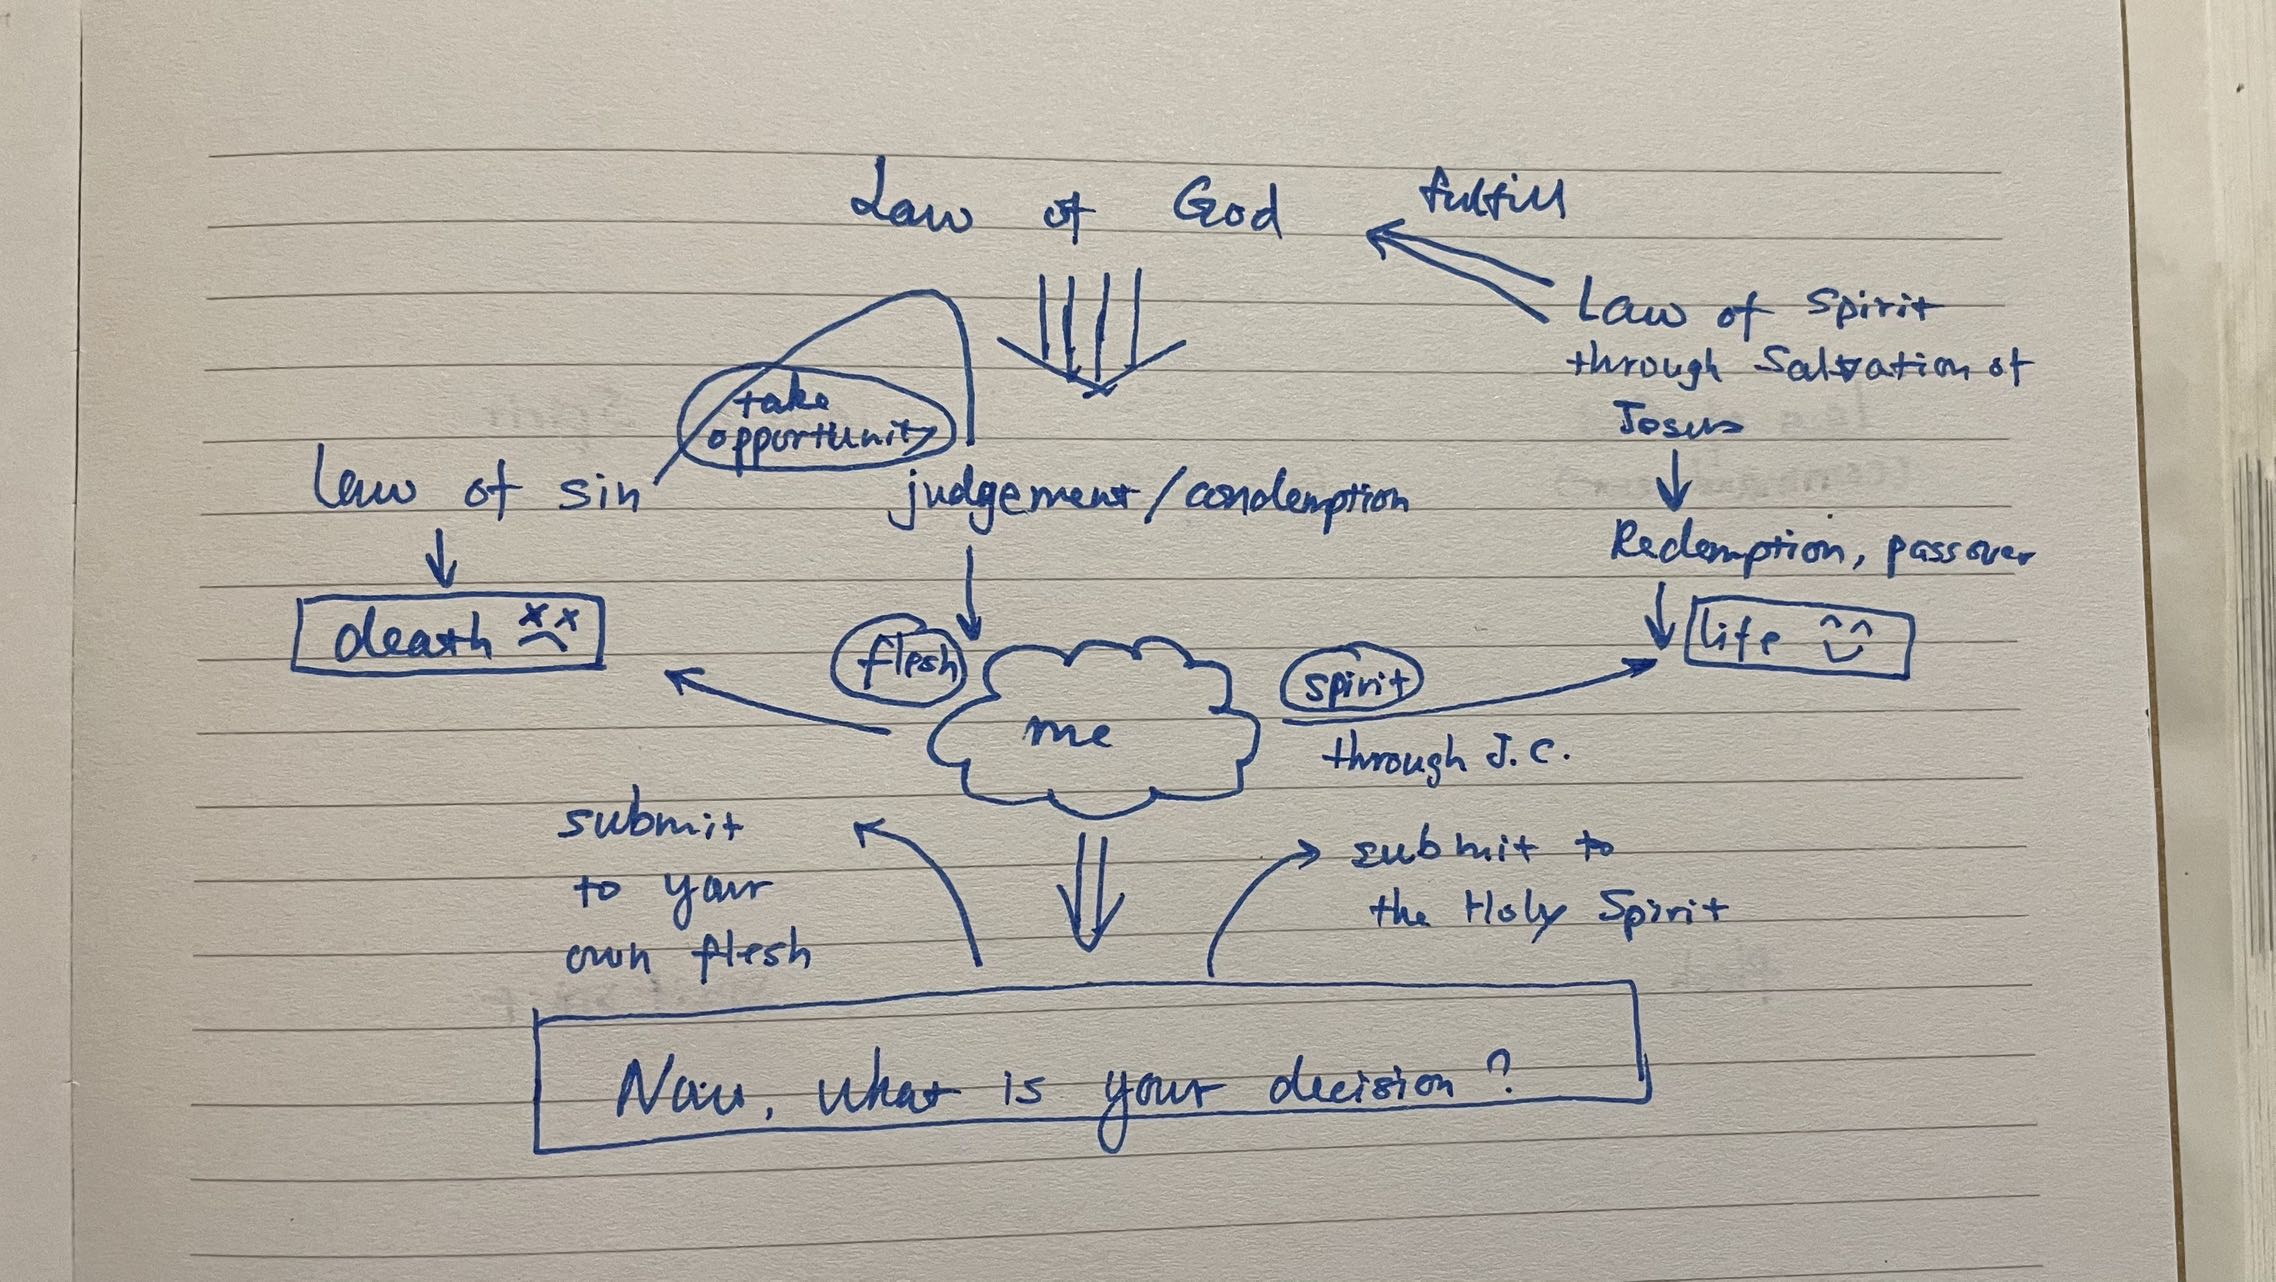 Law of God
fulfill
Law of Spirit
through Salvation of
Josus
take
opportunity
law of sin
judgement / condemption
Redemption, passover
death
life
flesh
spirit
me
through J.C.
submit
to your
own flesh
submit to
the Holy Spirit
Now, what is your decision?